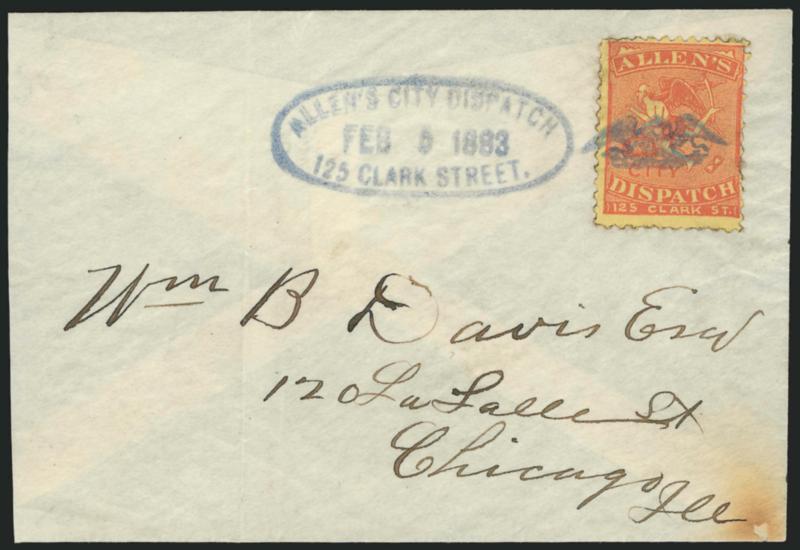 ALLEN'S CITY DISPATCH
FEB 5 1883
125 CLARK STREET.
ALLEN'S
CITY
DISPATCH
125 CLARK ST.
Wm B Davis Esq
12 LaSalle St
Chicago
Ill